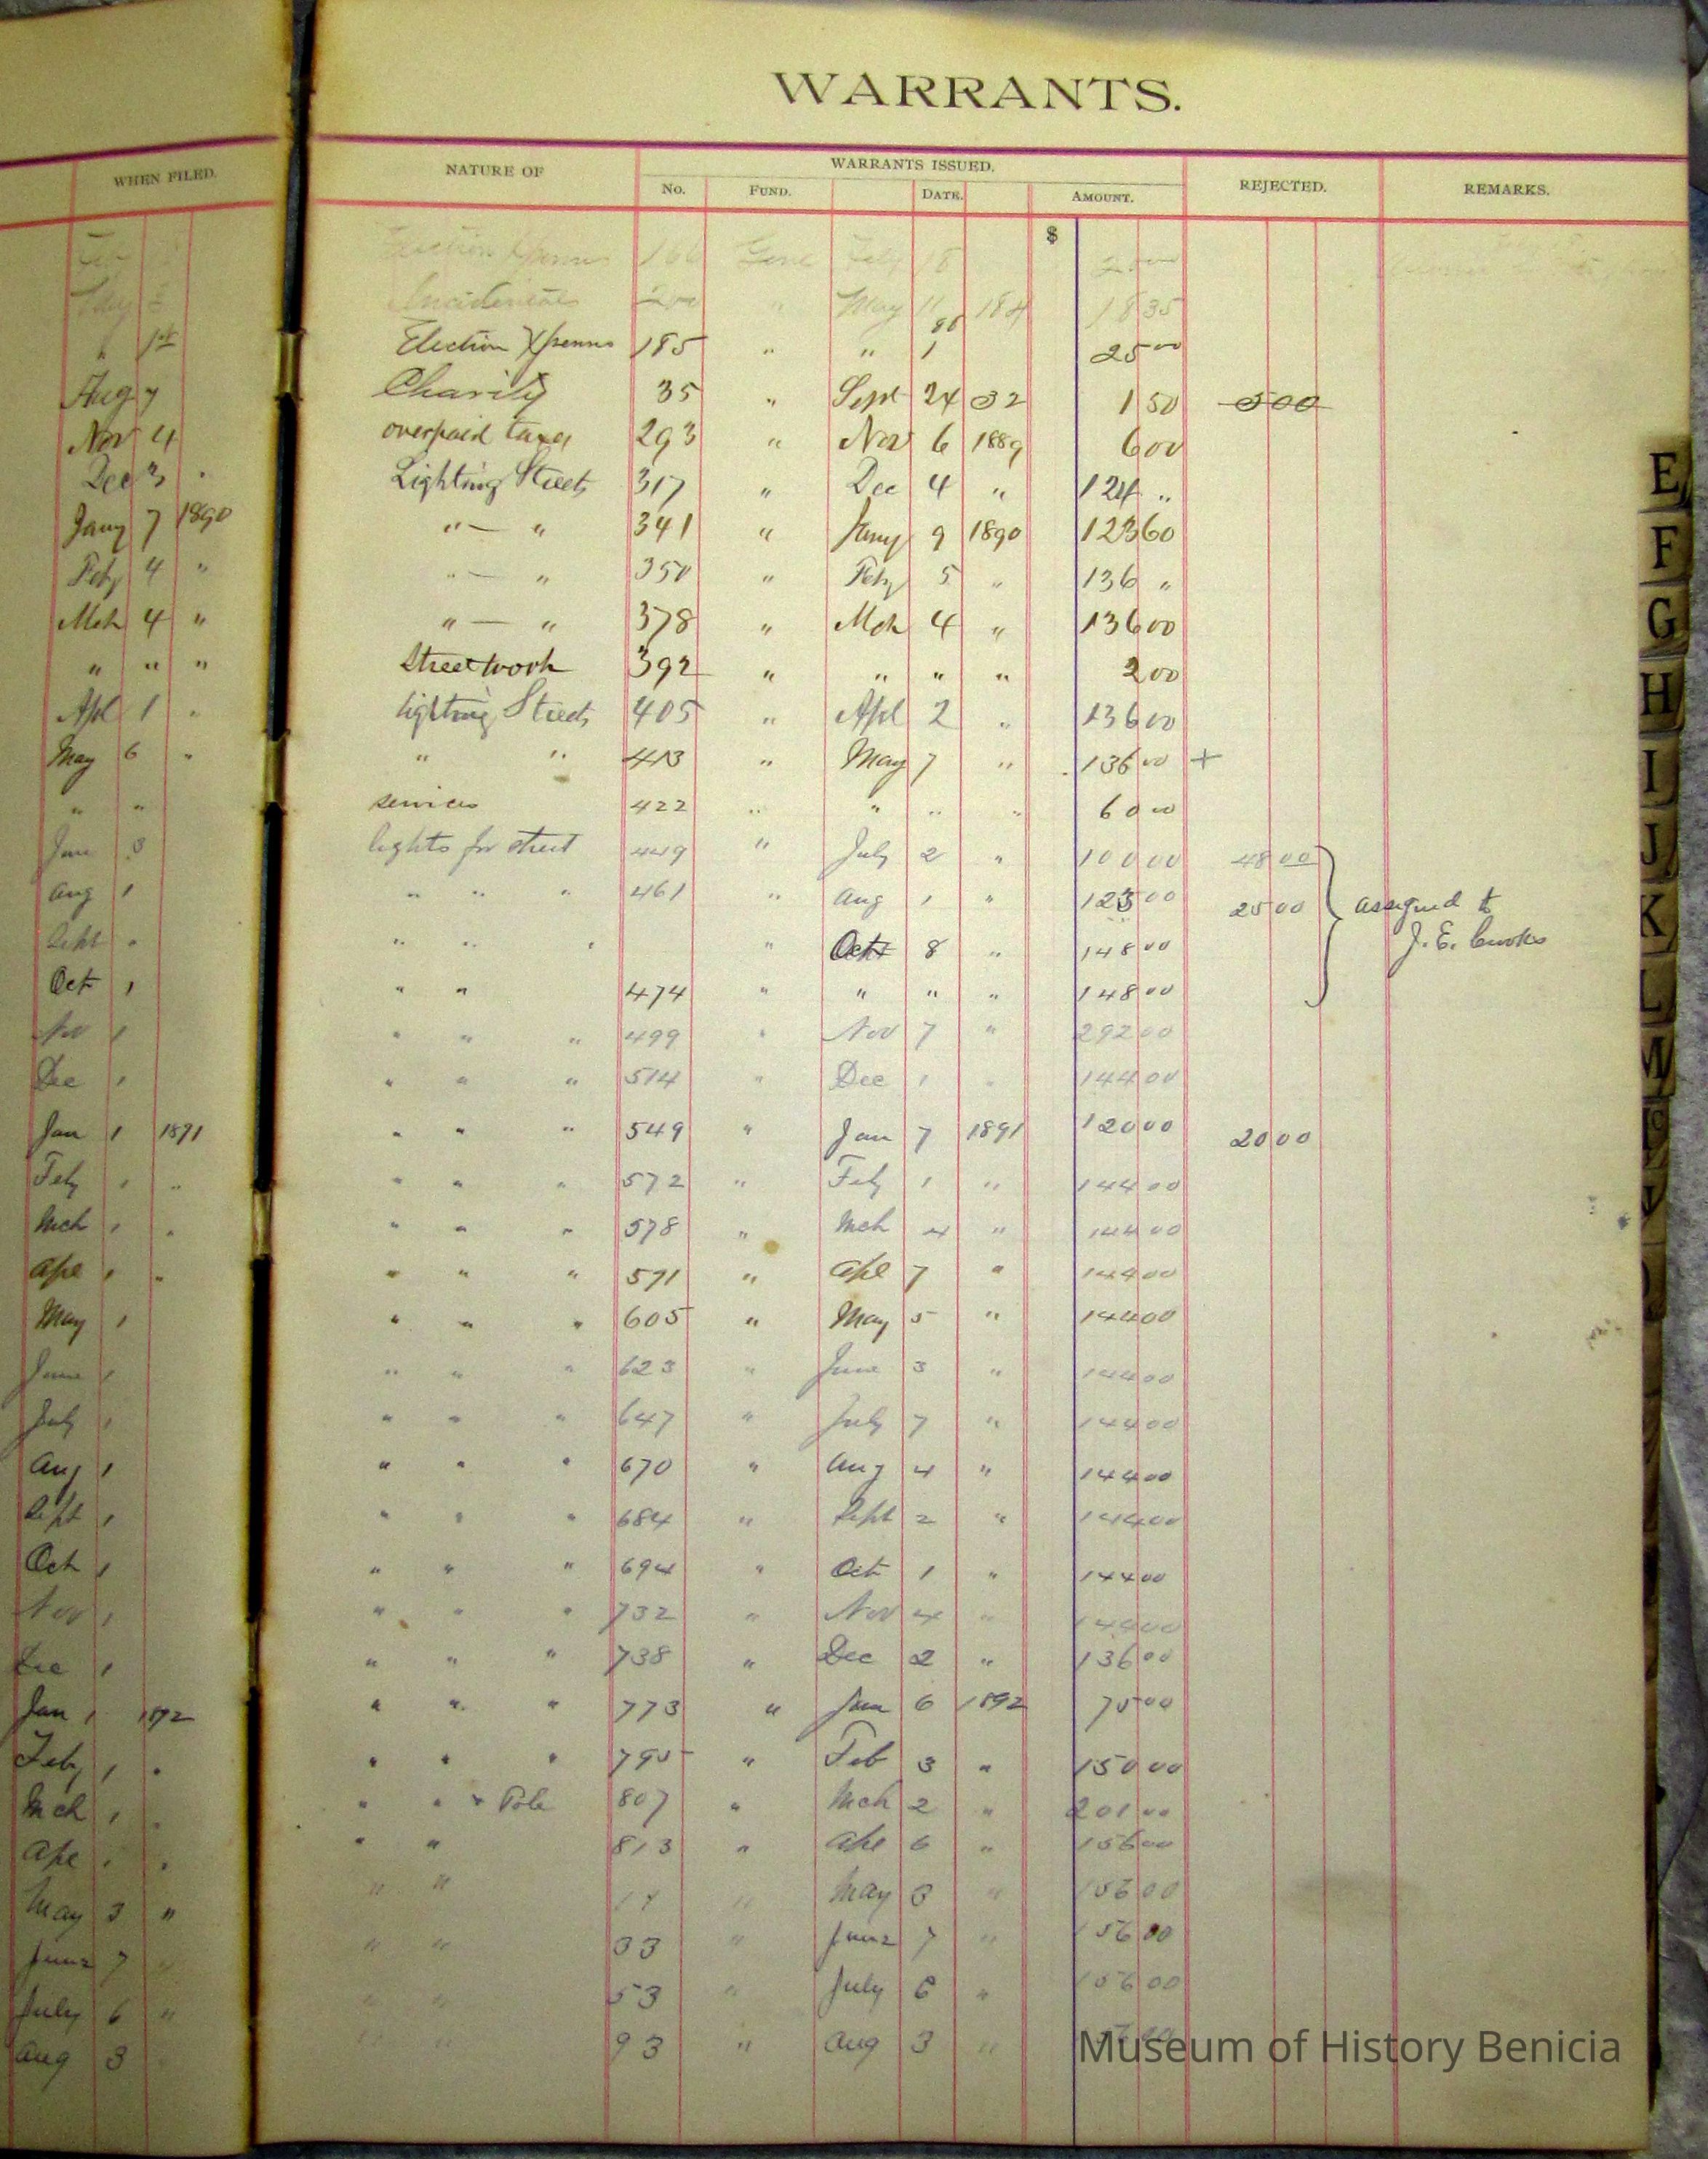 WARRANTS.
WHEN FILED. NATURE OF WARRANTS ISSUED. REJECTED. REMARKS.
No. FUND. DATE. AMOUNT.
$
Election Xpenses 166 Genl July 18
May Incidentals " May 11 188 18 35
" 1st Election Xpenses 185 " " 1 25 00
Aug 7 Charity 35 " Sept 24 1 50 5 00
Nov 4 overpaid taxes 293 " Nov 6 1889 6 00
Dec 3 " Lighting Streets 317 " Dec 4 " 124 "
Jany 7 1890 " — " 341 " Jany 9 1890 123 60
Feby 4 " " — " 350 " Feby 5 " 136 "
Mch 4 " " — " 378 " Mch 4 " 136 00
" " " Street work 392 " " " " 2 00
Apl 1 " lighting Streets 405 " Apl 2 " 136 00
May 6 " " " 413 " May 7 " 136 00 +
" " services 422 " " " " 60 00
Jun 3 lights for street 449 " July 2 " 100 00 48 00
Aug 1 " " " 461 " Aug 1 " 123 00 25 00 assigned to
Sept " " " " " Oct 8 " 148 00 J. E. Crooks
Oct 1 " " 474 " " " " 148 00
Nov 1 " " " 499 " Nov 7 " 292 00
Dec 1 " " " 514 " Dec 1 " 144 00
Jan 1 1891 " " " 549 " Jan 7 1891 120 00 20 00
Feby 1 " " " " 572 " Feby 1 " 144 00
Mch 1 " " " " 578 " Mch 4 " 144 00
Ape 1 " " " " 591 " Ape 7 " 144 00
May 1 " " " 605 " May 5 " 144 00
June 1 " " " 623 " June 3 " 144 00
July 1 " " " 647 " July 7 " 144 00
Aug 1 " " " 670 " Aug 4 " 144 00
Sept 1 " " " 684 " Sept 2 " 144 00
Oct 1 " " " 694 " Oct 1 " 144 00
Nov 1 " " " 732 " Nov 4 " 144 00
Dec 1 " " " 738 " Dec 2 " 136 00
Jan 1 1892 " " " 773 " Jan 6 1892 75 00
Feby 1 " " " " 795 " Feb 3 " 150 00
Mch 1 " " " " Pole 807 " Mch 2 " 201 00
Ape 1 " " " 813 " Ape 6 " 156 00
May 3 " " " " May 3 " 156 00
June 7 " " " 33 " June 7 " 156 00
July 6 " " " 53 " July 6 " 156 00
Aug 3 " " 93 " Aug 3 "
E
F
G
H
I
J
K
L
M
Museum of History Benicia